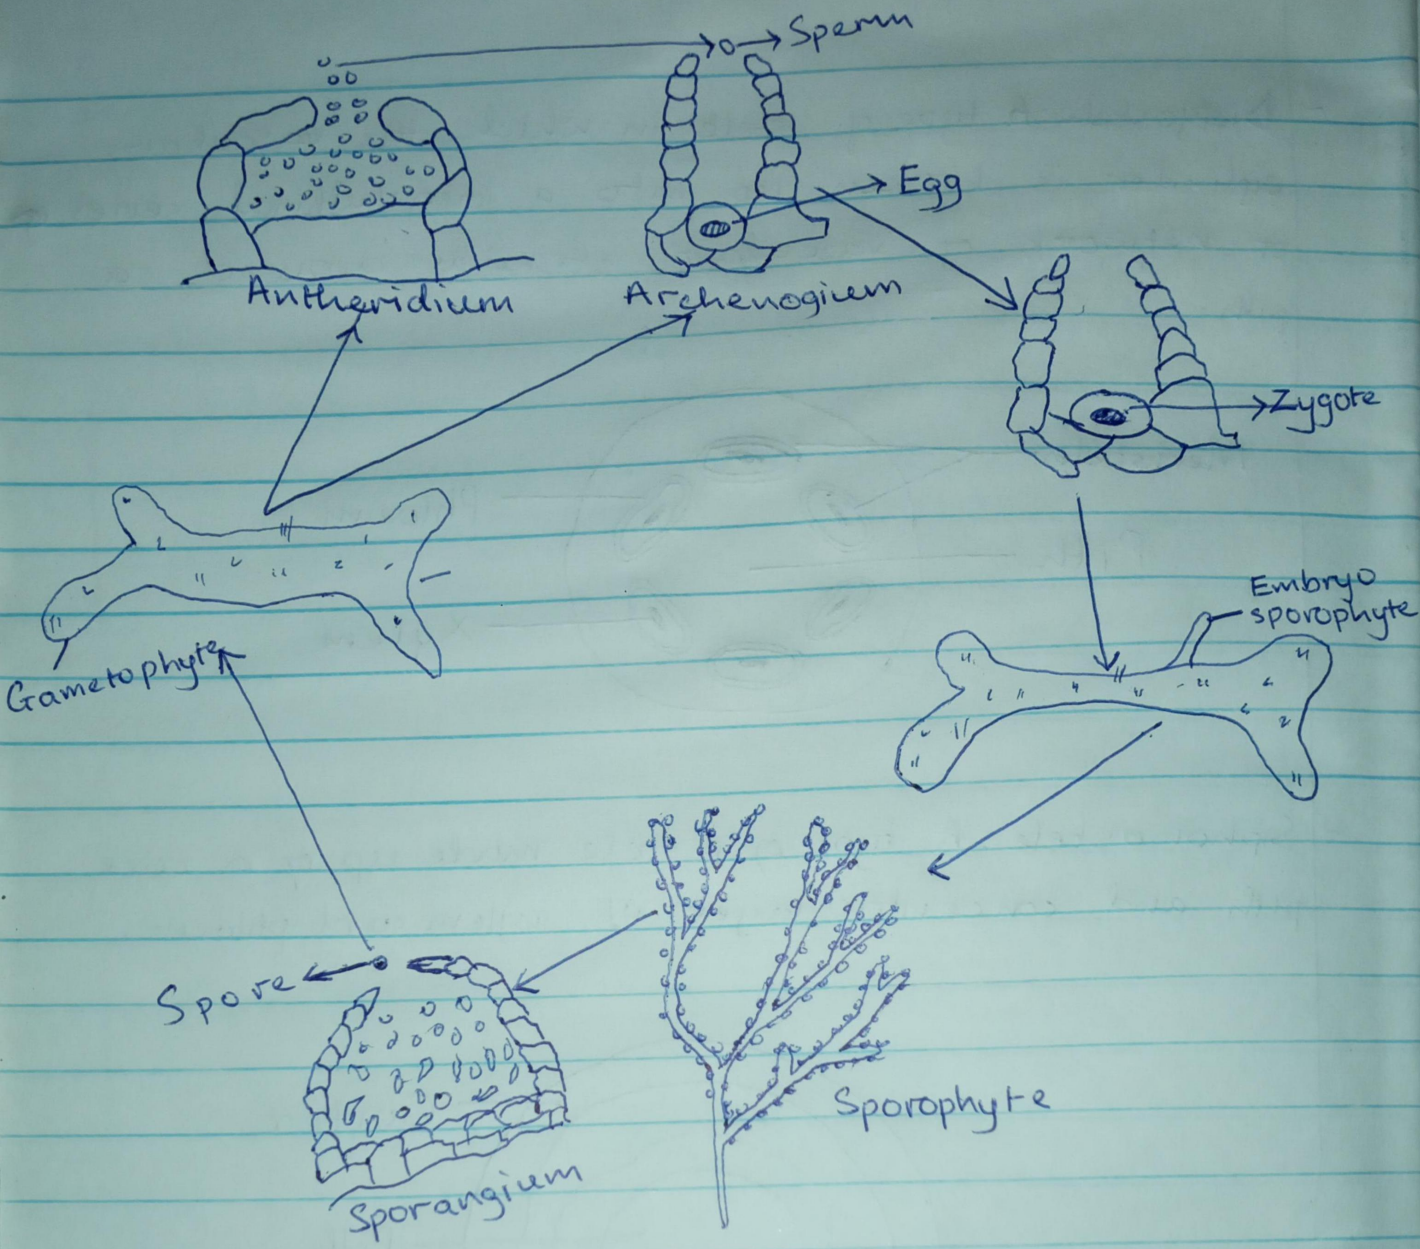 Sperm
Egg
Antheridium
Archenogium
Zygote
Embryo
sporophyte
Gametophyte
Spore
Sporophyte
Sporangium